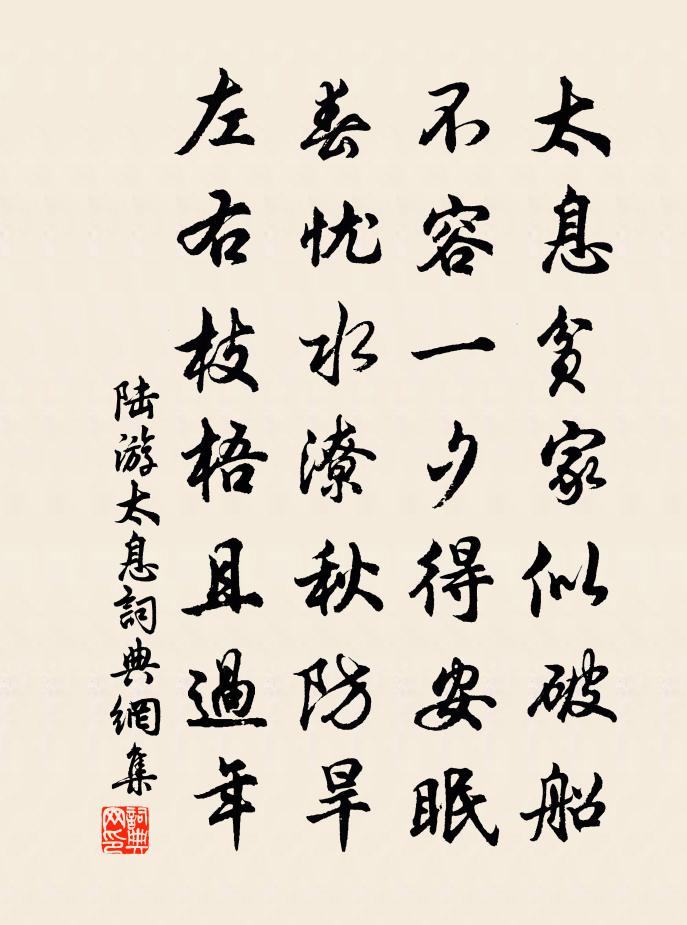 太息贫家似破船
不容一夕得安眠
春忧水潦秋防旱
左右枝梧且過年
陆游太息詞典網集
詞典
网印